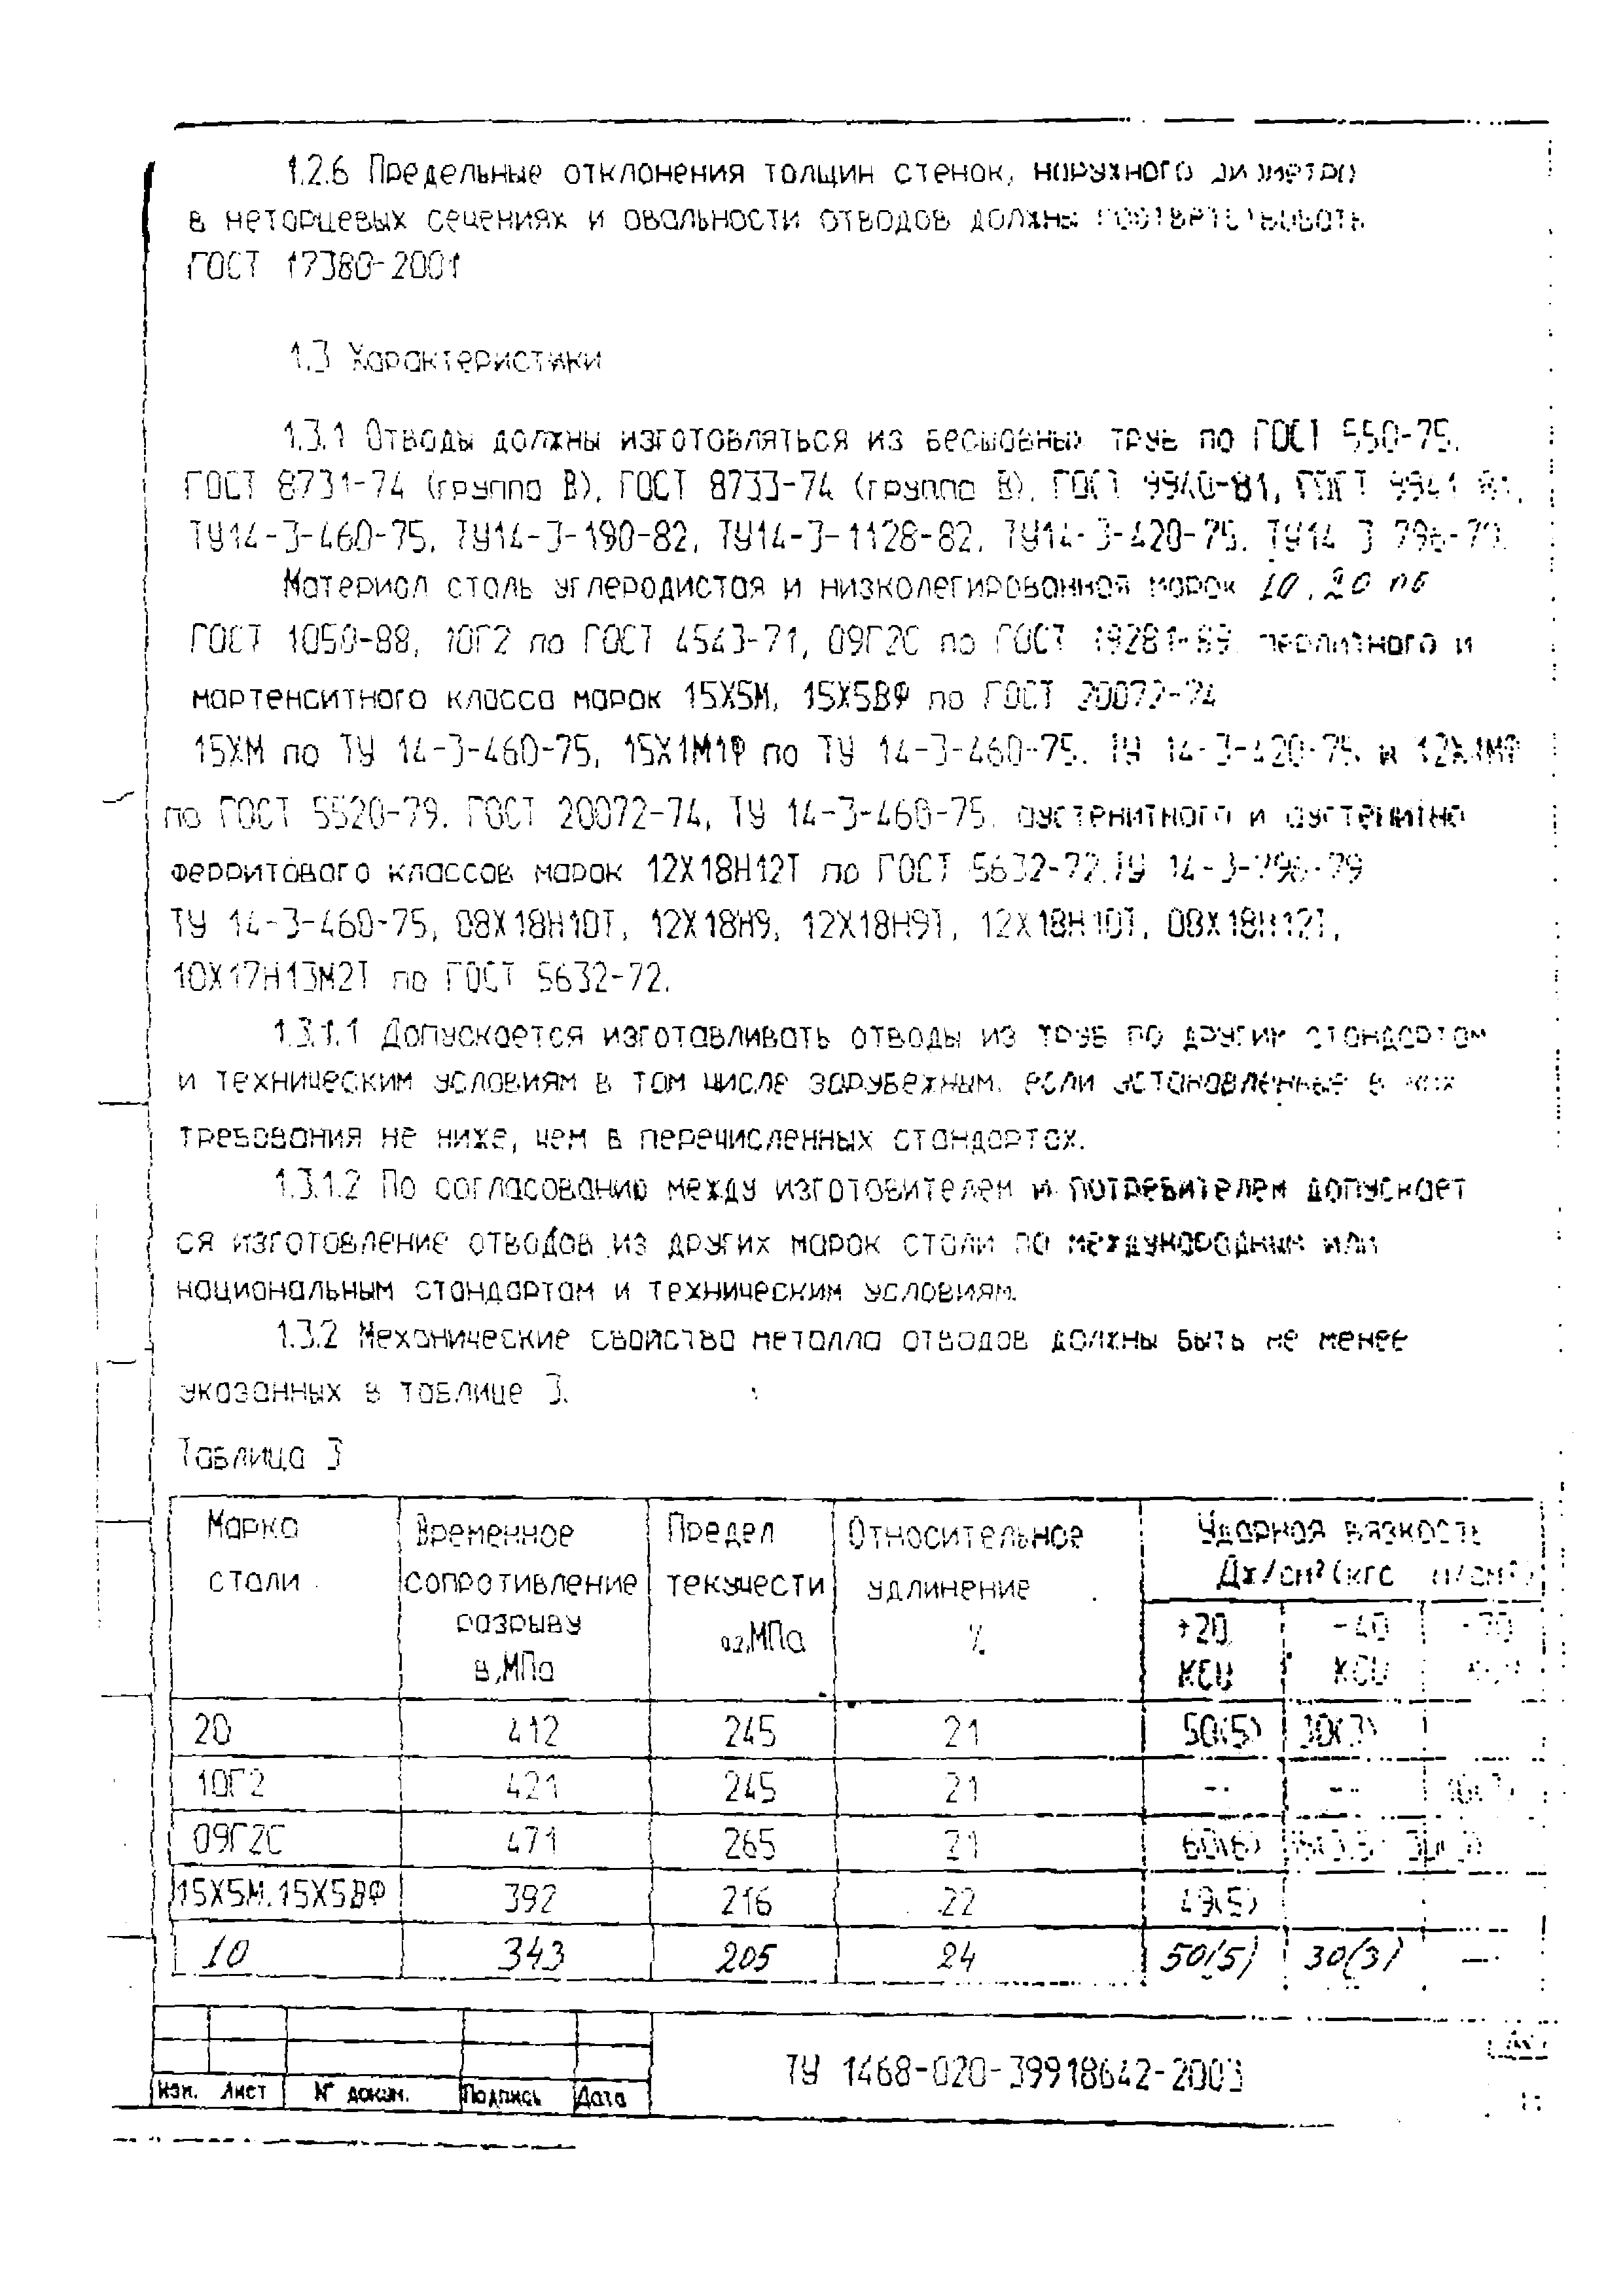 1.2.6 Предельные отклонения толщин стенок, наружного диаметра
в неторцевых сечениях и овальности отводов должны соответствовать
ГОСТ 17380-2001
1.3 Характеристики
1.3.1 Отводы должны изготовляться из бесшовных труб по ГОСТ 550-75,
ГОСТ 8731-74 (группа В), ГОСТ 8733-74 (группа В), ГОСТ 9940-81, ГОСТ 9941-81,
ТУ14-3-460-75, ТУ14-3-190-82, ТУ14-3-1128-82, ТУ14-3-420-75, ТУ14-3-796-79.
Материал сталь углеродистая и низколегированная марок 10, 20 по
ГОСТ 1050-88, 10Г2 по ГОСТ 4543-71, 09Г2С по ГОСТ 19281-89, перлитного и
мартенситного класса марок 15Х5М, 15Х5ВФ по ГОСТ 20072-74
15ХМ по ТУ 14-3-460-75, 15Х1М1Ф по ТУ 14-3-460-75, ТУ 14-3-420-75 и 12Х1МФ
по ГОСТ 5520-79, ГОСТ 20072-74, ТУ 14-3-460-75, аустенитного и аустенитно
ферритового классов марок 12Х18Н12Т по ГОСТ 5632-72,ТУ 14-3-796-79
ТУ 14-3-460-75, 08Х18Н10Т, 12Х18Н9, 12Х18Н9Т, 12Х18Н10Т, 08Х18Н12Т,
10Х17Н13М2Т по ГОСТ 5632-72.
1.3.1.1 Допускается изготавливать отводы из труб по другим стандартам
и техническим условиям в том числе зарубежным, если установленные в них
требования не ниже, чем в перечисленных стандартах.
1.3.1.2 По согласованию между изготовителем и потребителем допускает
ся изготовление отводов из других марок стали по международным или
национальным стандартам и техническим условиям.
1.3.2 Механические свойства металла отводов должны быть не менее
указанных в таблице 3.
Таблица 3
Марка стали Временное сопротивление разрыву в,МПа Предел текучести 0.2,МПа Относительное удлинение % Ударная вязкость Дж/см²(кгс м/см²)
+20 KCU -40 KCU -70
20 412 245 21 50(5) 30(3)
10Г2 421 245 21 -- --
09Г2С 471 265 21 60(6)
15Х5М,15Х5ВФ 392 216 22 49(5)
10 343 205 24 50(5) 30(3) —
ТУ 1468-020-39918642-2003
Изм. Лист № докум. Подпись Дата